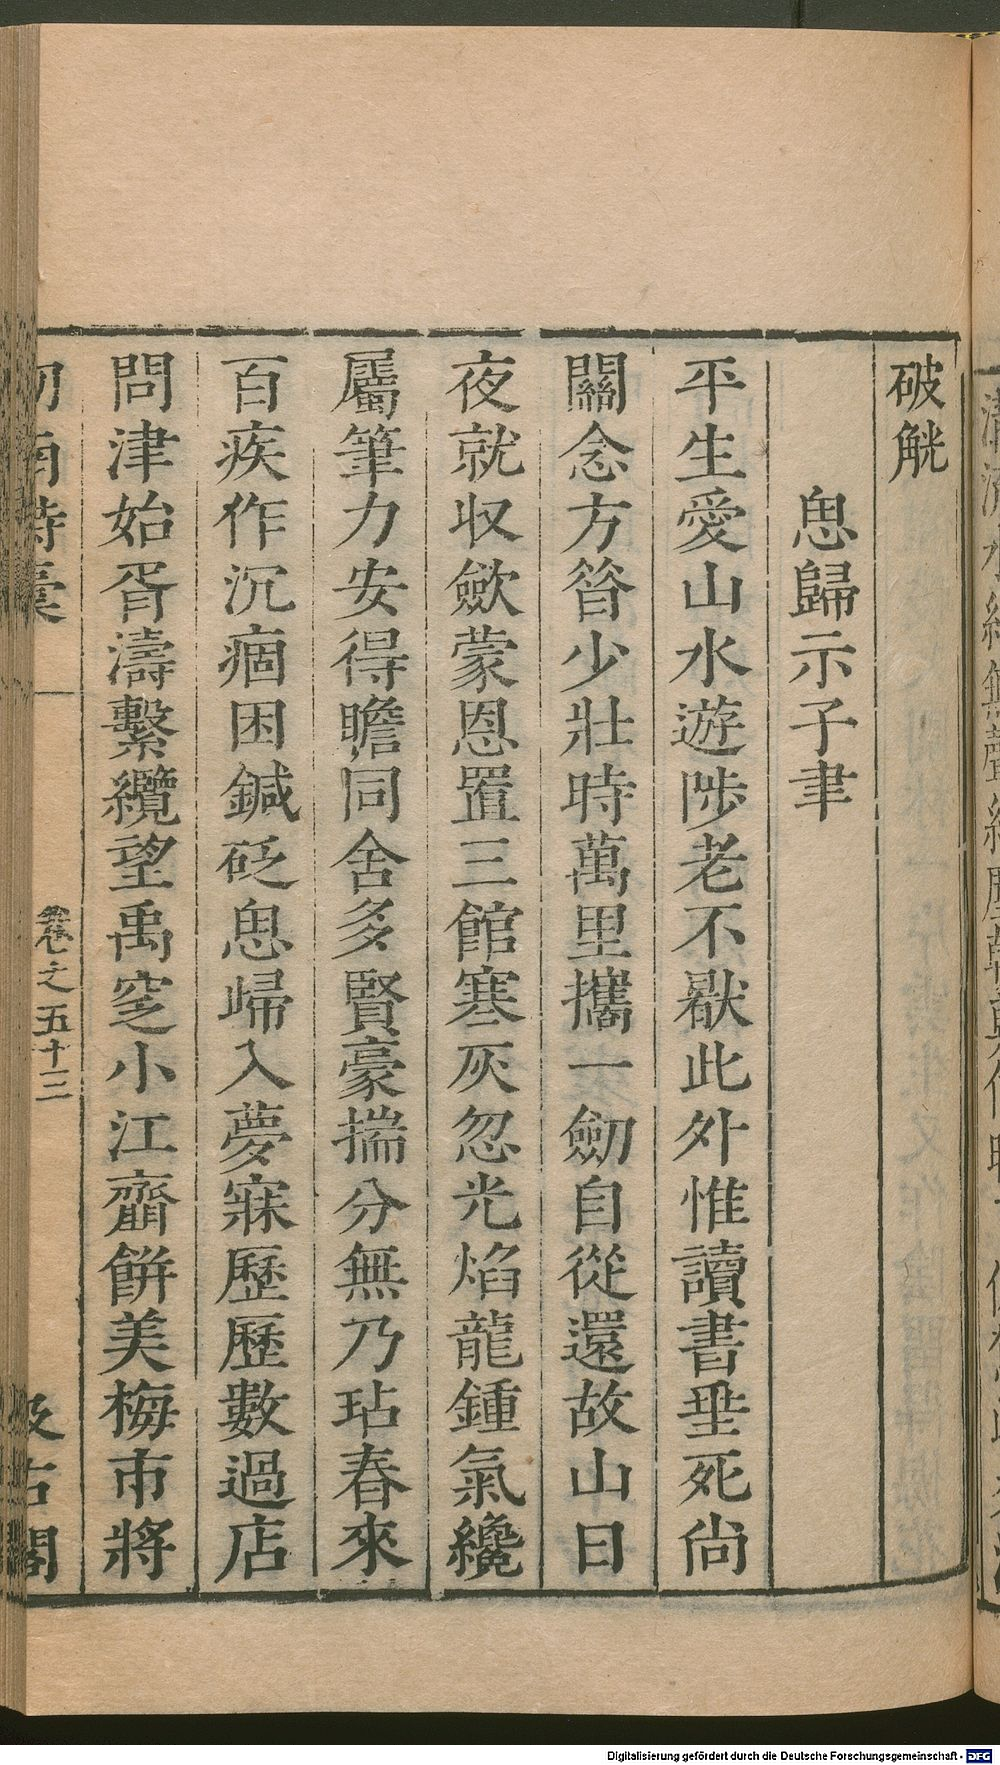 破觥
思歸示子聿
平生愛山水遊陟老不厭此外惟讀書垂死尚
關念方簮少壯時萬里攜一劒自從還故山日
夜就収斂蒙恩置三館寒灰忽光焰龍鍾氣纔
屬筆力安得贍同舍多賢豪揣分無乃玷春來
百疾作沉痼困鍼砭思歸入夢寐歷歷數過店
問津始胥濤繫纜望禹穸小江齏餅美梅市將
卷之五十三
汲古閣
Digitalisierung gefördert durch die Deutsche Forschungsgemeinschaft - DFG